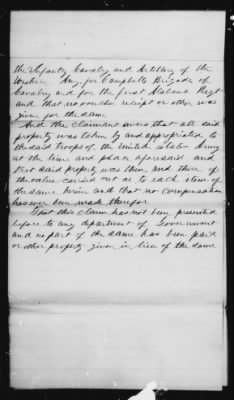 the Infantry Cavalry and Artillery of the
Western Army, for Campbells Brigade of
Cavalry and for the first Alabama Regt
and that no voucher receipt or other was
given for the same
And the Claimant avers that all said
property was taken by and appropriated to
the said troops of the United States Army
at the time and place aforesaid and
that said property was then and there of
the value carried out as to each item of
the same herein and that no compensation
has ever been made therefor
That this claim has not been presented
before to any department of Government
and no part of the same has been paid
or other property given in lieu of the same